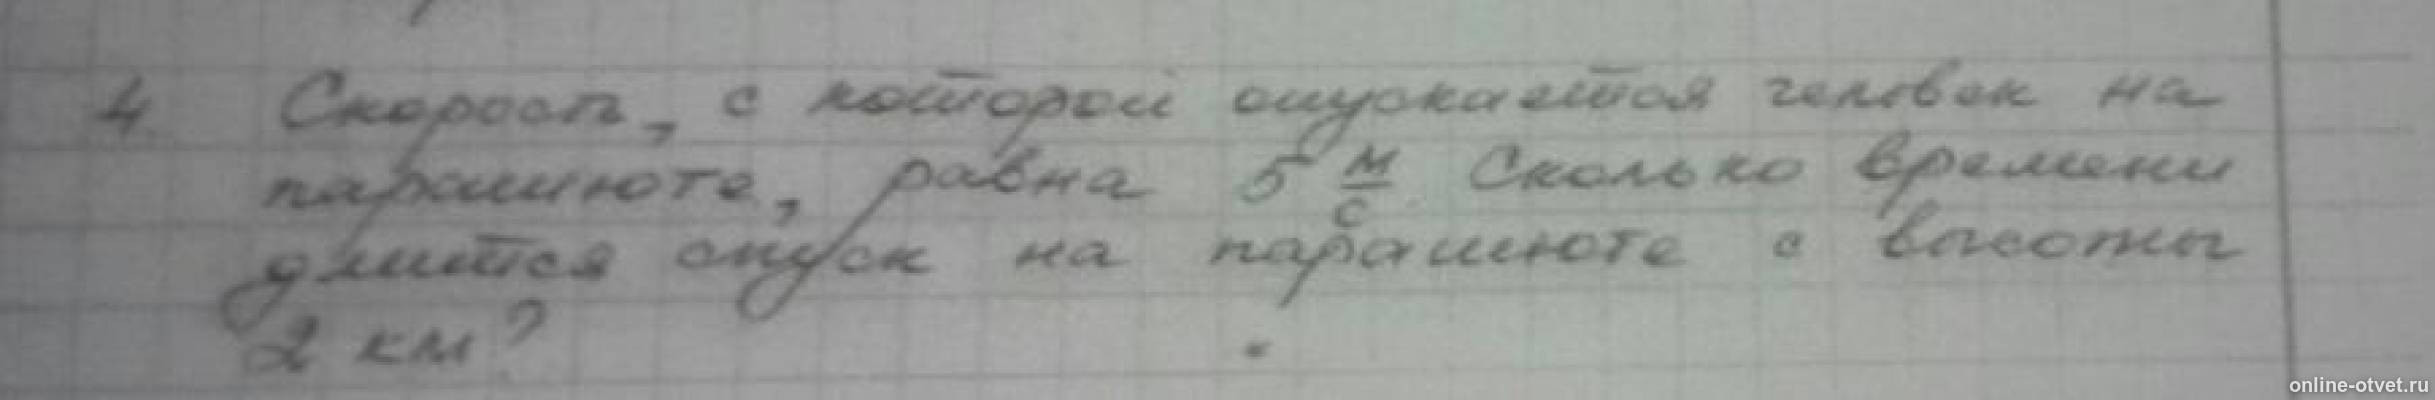 4. Скорость, с которой опускается человек на
парашюте, равна 5 м/с. Сколько времени
длится спуск на парашюте с высоты
2 км?
online-otvet.ru